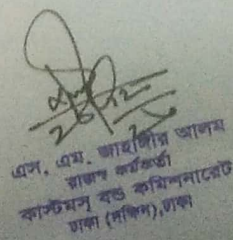 এস, এম, জাহাঙ্গীর আলম
রাজস্ব কর্মকর্তা
কাস্টমস্ বন্ড কমিশনারেট
ঢাকা (দক্ষিণ), ঢাকা